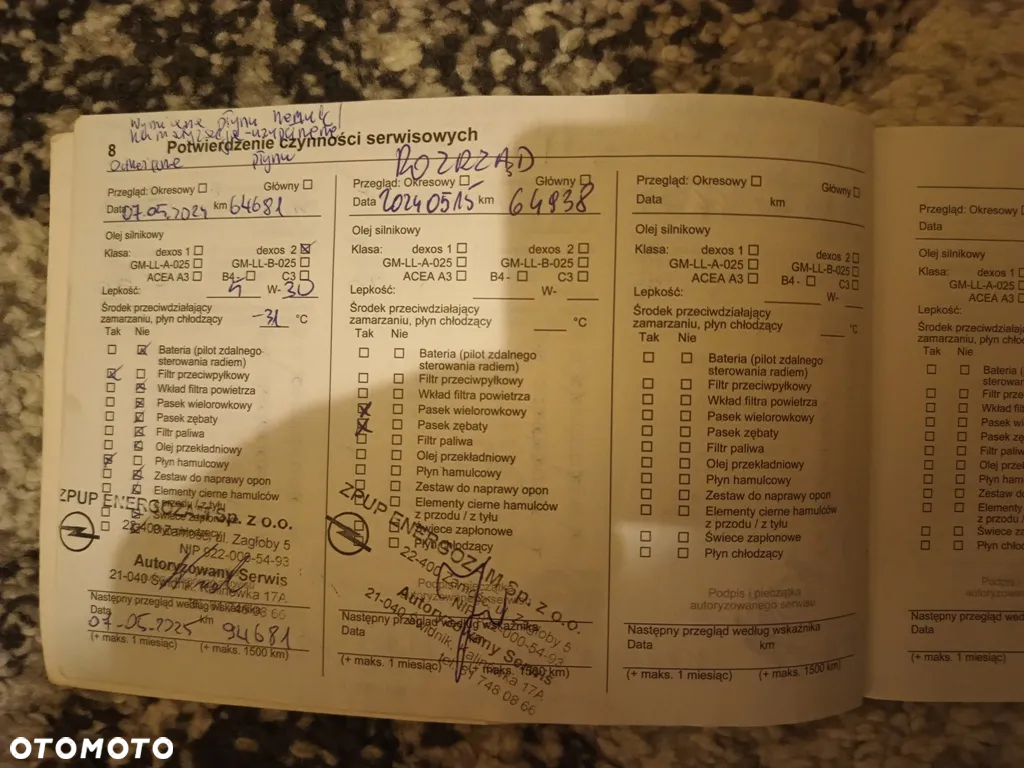 Wymienione płynu hamulc
klimatyzacja - uzupełnienie
płynu
8 Potwierdzenie czynności serwisowych
Przegląd: Okresowy Główny
Data 07.05.2024 km 64681
Olej silnikowy
Klasa: dexos 1 dexos 2
GM-LL-A-025 GM-LL-B-025
ACEA A3 B4- C3
Lepkość: 5 W- 30
Środek przeciwdziałający
zamarzaniu, płyn chłodzący -31 °C
Tak Nie
Bateria (pilot zdalnego
sterowania radiem)
Filtr przeciwpyłkowy
Wkład filtra powietrza
Pasek wielorowkowy
Pasek zębaty
Filtr paliwa
Olej przekładniowy
Płyn hamulcowy
Zestaw do naprawy opon
Elementy cierne hamulców
z przodu / z tyłu
Świece zapłonowe
ZPUP ENERGOZAM Sp. z o.o.
22-400 Zamość, ul. Zagłoby 5
NIP 922-000-54-93
Autoryzowany Serwis
21-040 Świdnik, Kalinówka 17A
tel. 81 748 08 66
Następny przegląd według wskaźnika
Data km
07-05.2025 94681
(+ maks. 1 miesiąc) (+ maks. 1500 km)
ROZRZĄD
Przegląd: Okresowy Główny
Data 2024 05 15 km 64938
Olej silnikowy
Klasa: dexos 1 dexos 2
GM-LL-A-025 GM-LL-B-025
ACEA A3 B4- C3
Lepkość: W-
Środek przeciwdziałający
zamarzaniu, płyn chłodzący °C
Tak Nie
Bateria (pilot zdalnego
sterowania radiem)
Filtr przeciwpyłkowy
Wkład filtra powietrza
Pasek wielorowkowy
Pasek zębaty
Filtr paliwa
Olej przekładniowy
Płyn hamulcowy
Zestaw do naprawy opon
Elementy cierne hamulców
z przodu / z tyłu
Świece zapłonowe
Płyn chłodzący
ZPUP ENERGOZAM Sp. z o.o.
22-400 Zamość, ul. Zagłoby 5
NIP 922-000-54-93
Autoryzowany Serwis
21-040 Świdnik, Kalinówka 17A
tel. 81 748 08 66
Następny przegląd według wskaźnika
Data
(+ maks. 1 miesiąc) (+ maks. 1500 km)
Przegląd: Okresowy Główny
Data km
Olej silnikowy
Klasa: dexos 1 dexos 2
GM-LL-A-025 GM-LL-B-025
ACEA A3 B4- C3
Lepkość: W-
Środek przeciwdziałający
zamarzaniu, płyn chłodzący °C
Tak Nie
Bateria (pilot zdalnego
sterowania radiem)
Filtr przeciwpyłkowy
Wkład filtra powietrza
Pasek wielorowkowy
Pasek zębaty
Filtr paliwa
Olej przekładniowy
Płyn hamulcowy
Zestaw do naprawy opon
Elementy cierne hamulców
z przodu / z tyłu
Świece zapłonowe
Płyn chłodzący
Podpis i pieczątka
autoryzowanego serwisu
Następny przegląd według wskaźnika
Data km
(+ maks. 1 miesiąc) (+ maks. 1500 km)
Przegląd: Okresowy
Data
Olej silnikowy
Klasa: dexos 1
GM-LL-A-025
ACEA A3
Lepkość:
Środek przeciwdziałając
zamarzaniu, płyn chłodz
Tak Nie
Bateria (
sterowan
Filtr prze
Wkład filt
Pasek wi
Pasek zę
Filtr paliw
Olej przek
Płyn ham
Zestaw do
Elementy
z przodu
Świece z
Płyn chło
Podpis i
autoryzow
Następny przegląd wedłu
Data
(+ maks. 1 miesiąc)
OTOMOTO